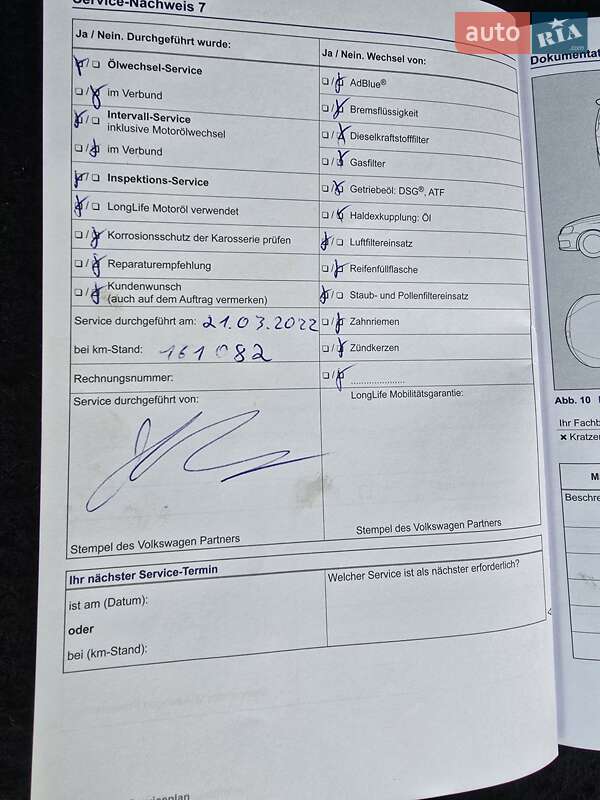 Service-Nachweis 7
Ja / Nein. Durchgeführt wurde:
Ölwechsel-Service
im Verbund
Intervall-Service
inklusive Motorölwechsel
im Verbund
Inspektions-Service
LongLife Motoröl verwendet
Korrosionsschutz der Karosserie prüfen
Reparaturempfehlung
Kundenwunsch
(auch auf dem Auftrag vermerken)
Service durchgeführt am: 21.03.2022
bei km-Stand: 161 082
Rechnungsnummer:
Service durchgeführt von:
Stempel des Volkswagen Partners
Ja / Nein. Wechsel von:
AdBlue®
Bremsflüssigkeit
Dieselkraftstofffilter
Gasfilter
Getriebeöl: DSG®, ATF
Haldexkupplung: Öl
Luftfiltereinsatz
Reifenfüllflasche
Staub- und Pollenfiltereinsatz
Zahnriemen
Zündkerzen
.....................
LongLife Mobilitätsgarantie:
Stempel des Volkswagen Partners
Ihr nächster Service-Termin
ist am (Datum):
oder
bei (km-Stand):
Welcher Service ist als nächster erforderlich?
auto RIA
.com
Dokumentat
Abb. 10
Ihr Fachb
× Kratze
M
Beschre